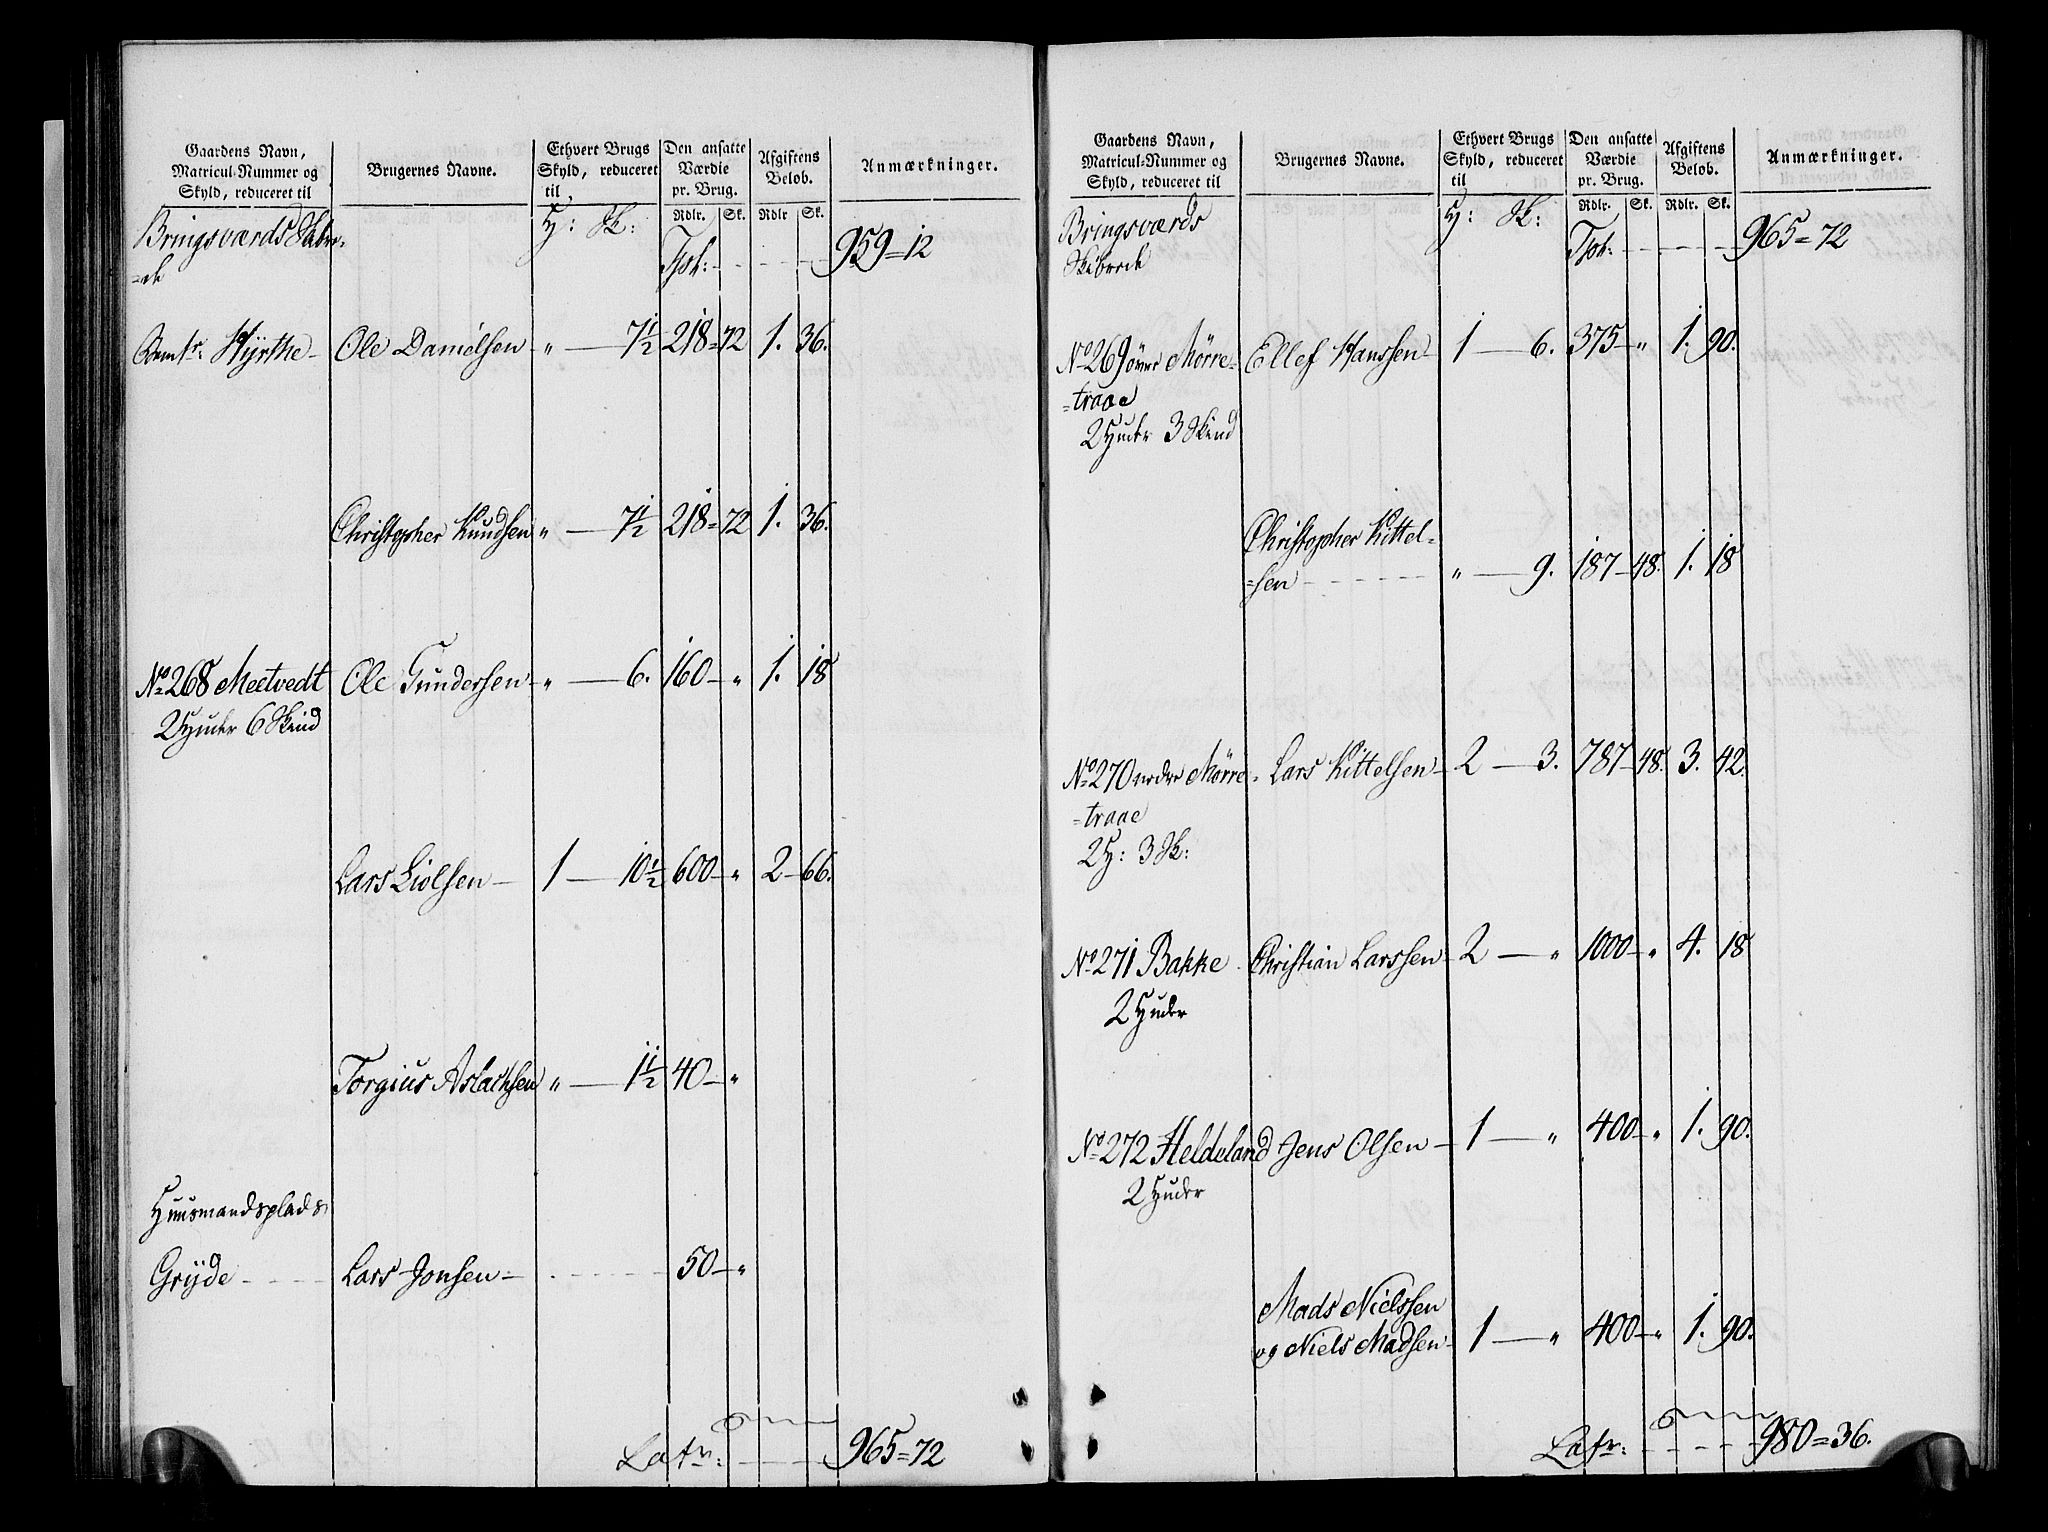 Gaardens Navn,
Matricul-Nummer og
Skyld, reduceret til
Brugernes Navne.
Ethvert Brugs
Skyld, reduceret
til
Den ansatte
Værdie
pr. Brug.
Afgiftens
Belob.
Anmærkninger.
Rdlr. Sk. Rdlr Sk.
Bringsværds Skibre-
=de
H: Sk:
Tpt: 959=12
Hyrthe Ole Danielsen " 7½ 218=72 1. 36.
Christopher Knudsen " 7½ 218=72 1. 36.
No 268 Meetvedt Ole Gundersen " 6. 160 " 1. 18
2 Huder 6 Skind
Lars Liølsen 1 10½ 600 " 2 66.
Torgius Aslachsen " 1½ 40 "
Huusmandsplads
Grÿde Lars Jonsen 50 "
Latr: 965=72
Gaardens Navn,
Matricul-Nummer og
Skyld, reduceret til
Brugernes Navne.
Ethvert Brugs
Skyld, reduceret
til
Den ansatte
Værdie
pr. Brug.
Afgiftens
Belob.
Anmærkninger.
Rdlr. Sk. Rdlr. Sk.
Bringsværds
Skibrede
H: Sk:
Tpt: 965=72
No 269 øvre Mørre= Ellef Hanssen 1 6. 375 " 1. 90.
=traae
2 Huder 3 Skind
Christopher Kittel=
=sen " 9. 187 48. 1. 18
No 270 nedre Mørre= Lars Kittelsen 2 3. 787 48. 3. 42.
=traae
2 H: 3 Sk:
No 271 Bakke Christian Larssen 2 " 1000 " 4. 18
2 Huder
No 272 Heldeland Jens Olsen 1 " 400 " 1. 90.
2 Huder
Mads Nielssen
og Niels Madsen 1 " 400 " 1. 90.
Latr: 980=36.